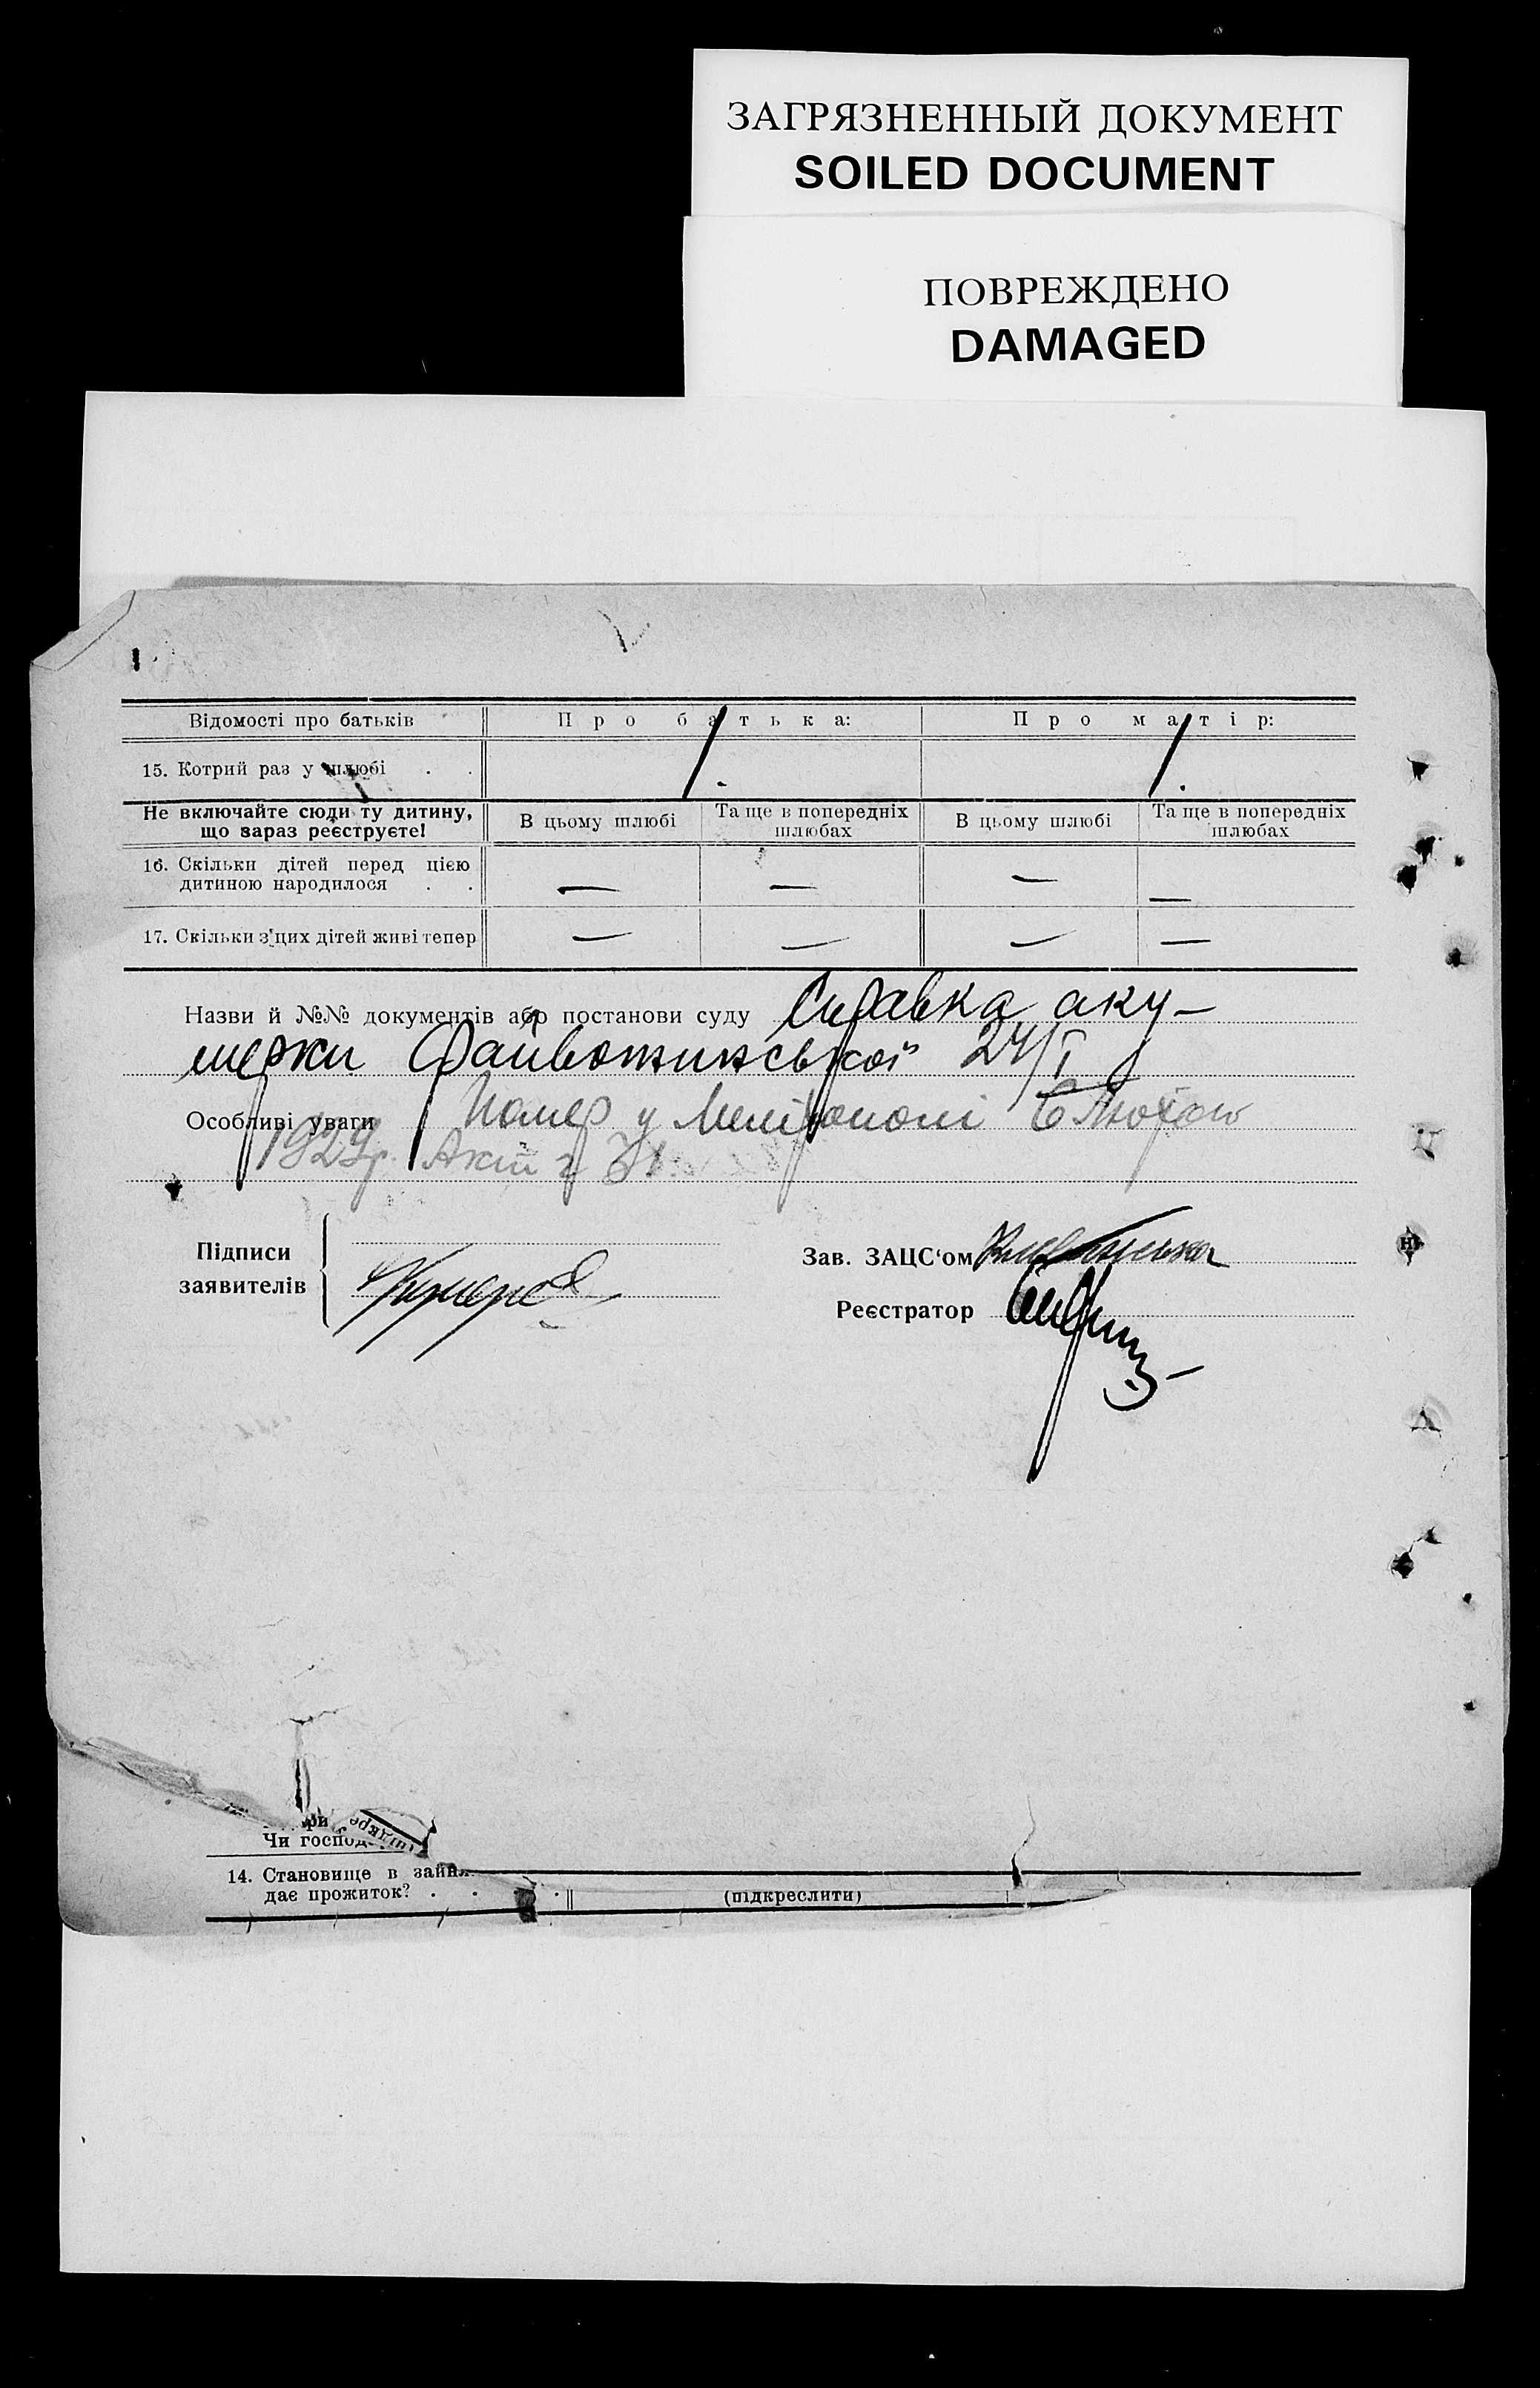 ЗАГРЯЗНЕННЫЙ ДОКУМЕНТ
SOILED DOCUMENT
ПОВРЕЖДЕНО
DAMAGED
Відомості про батьків Про батька: Про матір:
15. Котрий раз у шлюбі . . 1. 1.
Не включайте сюди ту дитину, що зараз реєструєте! В цьому шлюбі Та ще в попередніх шлюбах В цьому шлюбі Та ще в попередніх шлюбах
16. Скільки дітей перед цією
дитиною народилося . . — — — —
17. Скільки з цих дітей живі тепер — — — —
Назви й №№ документів або постанови суду Справка аку-
шерки 24/I
Особливі уваги Помер у Мелітополі 6 Лютого
1929р. Акт
Підписи
заявителів
Зав. ЗАЦС'ом
Реєстратор
Чи господ
14. Становище в зайня
дає прожиток? . . . (підкреслити)